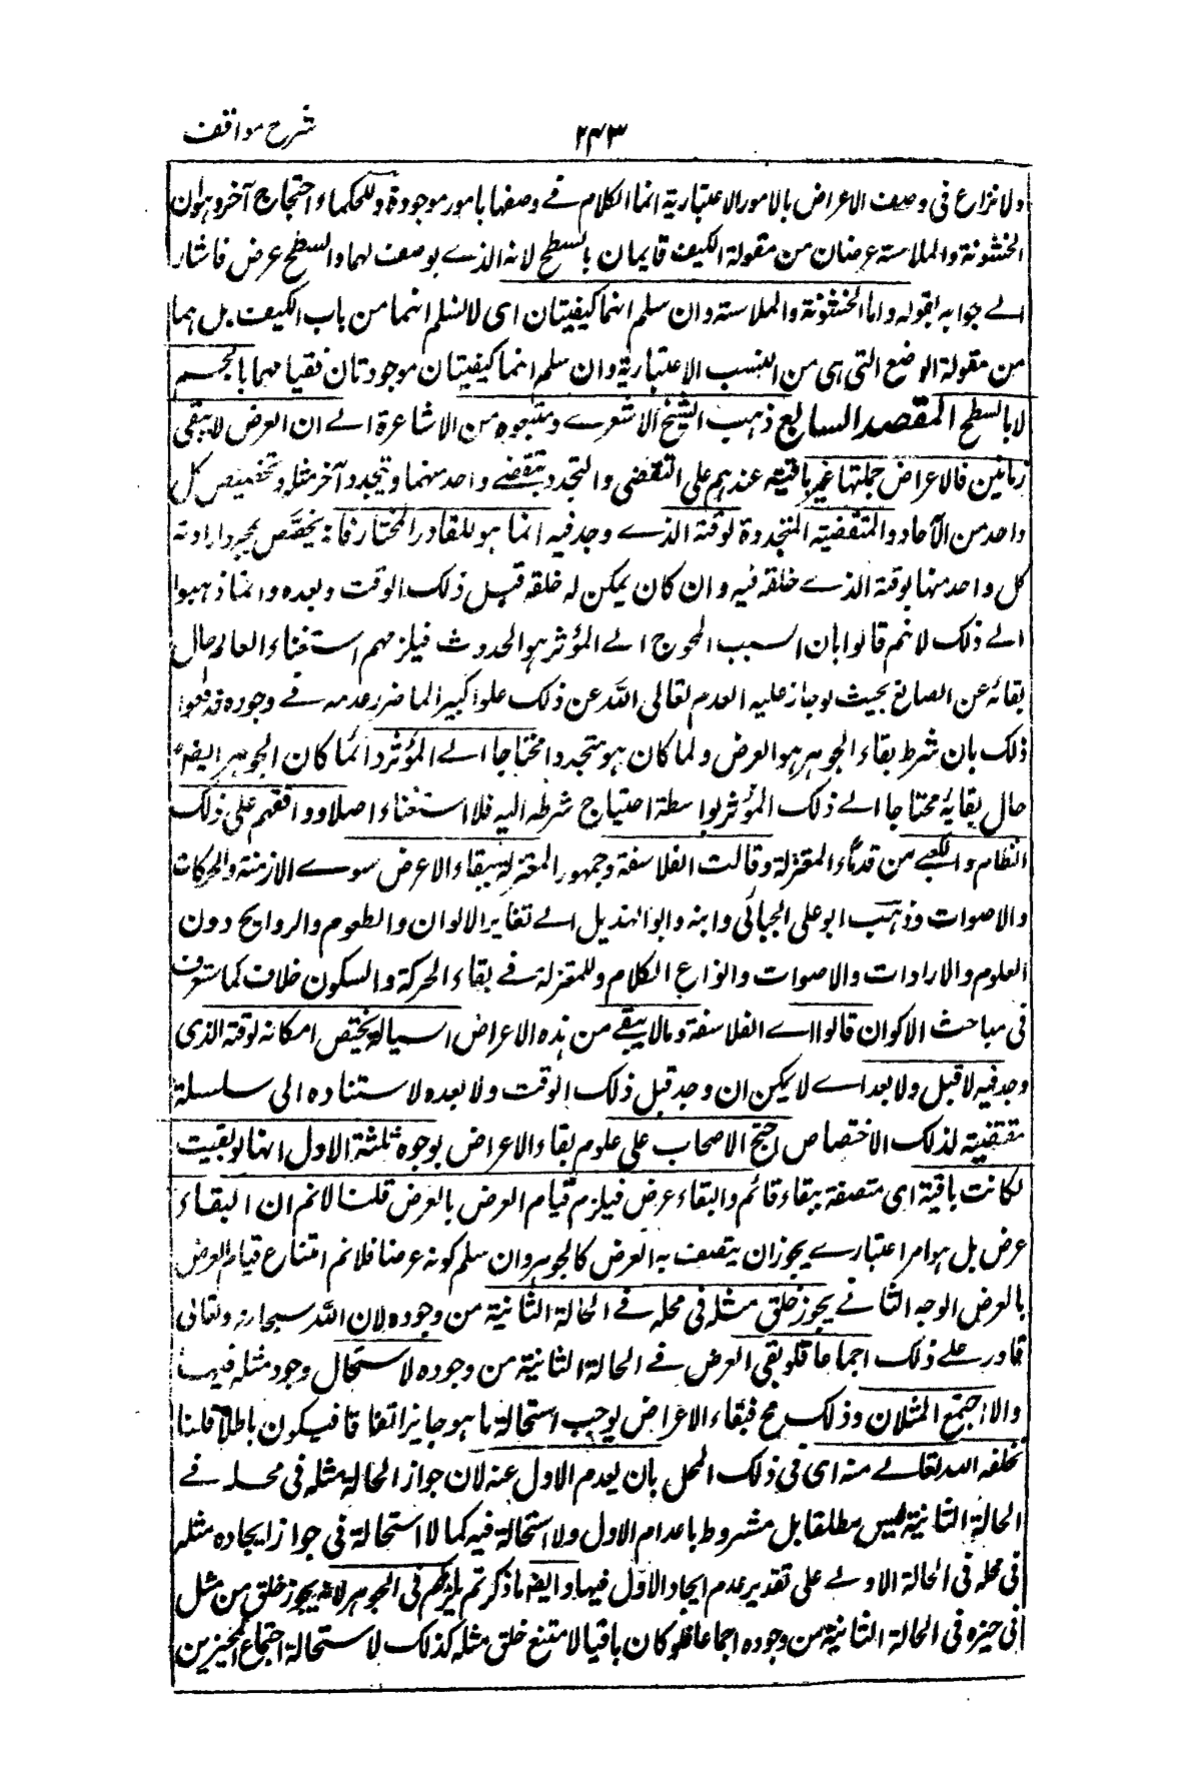 شرح مواقف
٢٤٣
ولا نزاع فى وصف الاعراض بالامور الاعتبارية انما الكلام فے وصفها بامور موجودة وللحكماء احتجاج آخر وهو ان
الخشونة والملاسة عرضان من مقولة الكيف قايمان بالسطح لانه الذے يوصف لهما والسطح عرض فاشار
الے جوابه بقوله واما الخشونة والملاسة وان سلم انهما كيفيتان اى لا نسلم انهما من باب الكيف بل هما
من مقولة الوضع التى هى من النسب الاعتبارية وان سلم انهما كيفيتان موجودتان فقيامهما بالجسم
لا بالسطح المقصد السابع ذهب الشيخ الاشعرے ومتبعوه من الاشاعرة الے ان العرض لا يبقى
زمانين فالاعراض جملتها غير باقية عندهم على التقضى والتجدد تنقضے واحد منهما ويتجدد آخر مثله وتخصيص كل
واحد من الآحاد والمتقضية المتجددة لوقته الذے وجد فيه انما هو للقادر المختار فانه يخصص بمجرد ارادته
كل واحد منها بوقته الذے خلقه فيه وان كان يمكن له خلقه قبل ذلك الوقت وبعده وانما ذهبوا
الے ذلك لانهم قالوا بان السبب المحوج الے المؤثر هو الحدوث فيلزمهم استغناء العالم حال
بقائه عن الصانع بحيث لو جاز عليه العدم تعالى الله عن ذلك علوا كبيرا لما ضر عدمه فے وجوده فدفعوا
ذلك بان شرط بقاء الجوهر هو العرض ولما كان هو متجددا محتاجا الے المؤثر دائما كان الجوهر ايضا
حال بقايه محتاجا الے ذلك المؤثر بواسطة احتياج شرطه اليه فلا استغناء اصلا ووافقهم على ذلك
النظام والكعبے من قدماء المعتزلة وقالت الفلاسفة وجمهور المعتزلة ببقاء الاعرض سوے الازمنة والحركات
والاصوات وذهب ابو على الجبائى وابنه وابو الهذيل الے تغاير الالوان والطعوم والروايح دون
العلوم والارادات والاصوات وانواع الكلام وللمعتزلة فے بقاء الحركة والسكون خلاف كما ستعرف
فى مباحث الاكوان قالوا اے الفلاسفة وما لا يبقے من هذه الاعراض السيالة يختص امكانه لوقته الذى
وجد فيه لا قبل ولا بعد اے لا يمكن ان وجد قبل ذلك الوقت ولا بعده لاستناده الى سلسلة
مقتضية لذلك الاختصاص احتج الاصحاب على علوم بقاء الاعراض بوجوه ثلثة الاول انها لو بقيت
لكانت باقية اى متصفة ببقاء قائم والبقاء عرض فيلزم قيام العرض بالعرض قلنا لا نم ان البقاء
عرض بل هو امر اعتبارے يجوز ان يتصف به العرض كالجوهر وان سلم كونه عرضا فلا نم امتناع قيام العرض
بالعرض الوجه الثانے يجوز خلق مثله فى محله فے الحالة الثانية من وجوده لان الله سبحانه وتعالى
قادر علے ذلك اجماعا فلو بقى العرض فے الحالة الثانية من وجوده لاستحال وجود مثله فيها
والا اجتمع المثلان وذلك مح فبقاء الاعراض يوجب استحالة ما هو جايز اتفاقا فيكون باطلا قلنا
يخلقه الله تعالے منه اى فى ذلك المحل بان يعدم الاول عنه لان جواز الحالة مثله فى محله فے
الحالة الثانية ليس مطلقا بل مشروط باعدام الاول ولا استحالة فيه كما لا استحالة فى جواز ايجاده مثله
فى محله فى الحالة الاولے على تقدير عدم ايجاد الاول فيها وايضا ما ذكرتم يلزمكم فى الجوهر لانه يجوز خلق من مثل
فى حيزه فى الحالة الثانية من وجوده اجماعا فلو كان باقيا لامتنع خلق مثله كذلك لاستحالة اجتماع المتحيزين